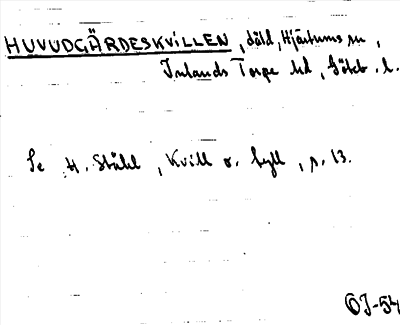 HUVUDGÄRDESKVILLEN, däld, Hjärtums sn,
Inlands Torpe hd, Göteb. l.
Se H. Ståhl, Kvill o. kyll, p. 13.
OJ-54